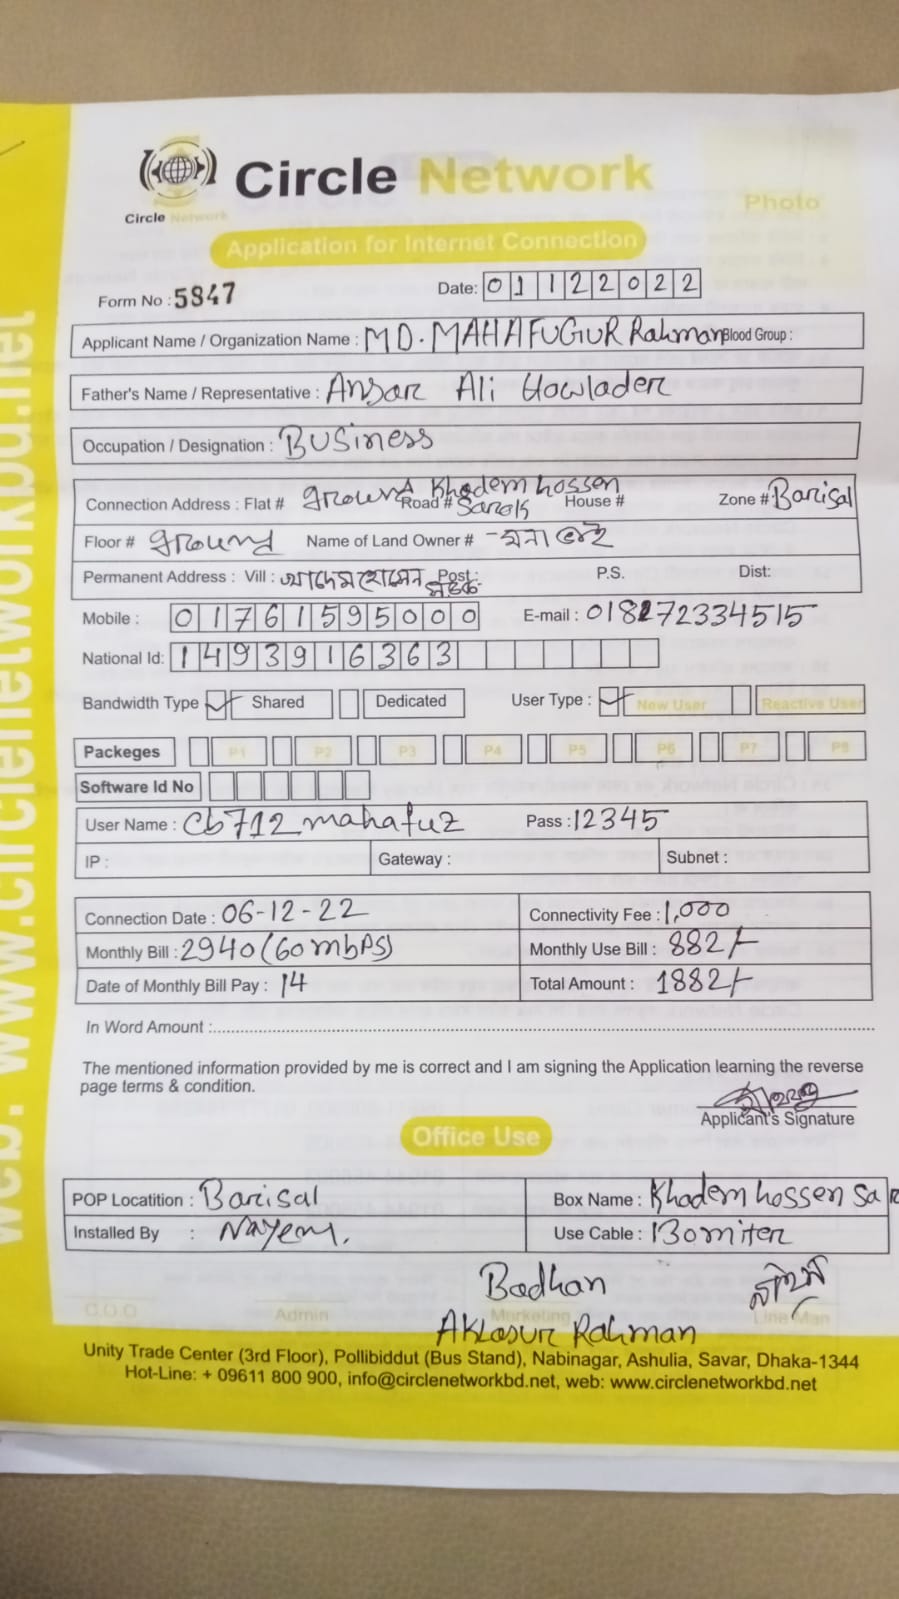 Circle Network
Circle Network
Photo
Application for Internet Connection
Form No : 5847 Date: 01122022
Applicant Name / Organization Name : MD. MAHAFUGUR Rahman Blood Group :
Father's Name / Representative : Ansar Ali Howlader
Occupation / Designation : BUSiness
Connection Address : Flat # ground Road # Khadem hossen Sarok House # Zone # Barisal
Floor # ground Name of Land Owner #
Permanent Address : Vill : Post : P.S. Dist:
Mobile : 01761595000 E-mail : 018272334515
National Id: 1493916363
Bandwidth Type Shared Dedicated User Type : New User Reactive User
Packeges P1 P2 P3 P4 P5 P6 P7 P8
Software Id No
User Name : Cb712mahafuz Pass : 12345
IP : Gateway : Subnet :
Connection Date : 06-12-22 Connectivity Fee : 1,000
Monthly Bill : 2940 (60mbPS) Monthly Use Bill : 882/-
Date of Monthly Bill Pay : 14 Total Amount : 1882/-
In Word Amount :
The mentioned information provided by me is correct and I am signing the Application learning the reverse
page terms & condition.
Applicant's Signature
Office Use
POP Locatition : Barisal Box Name : Khadem hossen Sar
Installed By : Nayem. Use Cable : 130 miter
Badhan
C.O.O Admin Marketing Line Man
Aklasur Rahman
Unity Trade Center (3rd Floor), Pollibiddut (Bus Stand), Nabinagar, Ashulia, Savar, Dhaka-1344
Hot-Line: + 09611 800 900, info@circlenetworkbd.net, web: www.circlenetworkbd.net
web: www.circlenetworkbd.net